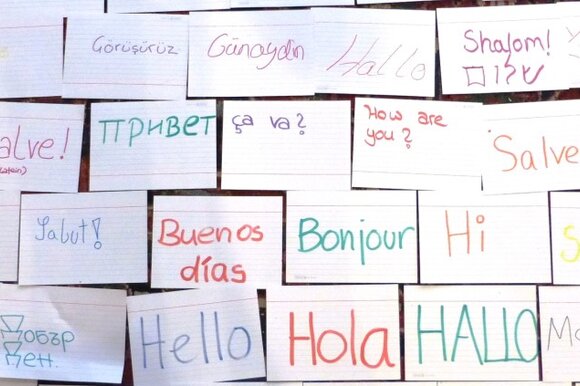 Görüşürüz
Günaydin
Hallo
Shalom!
שלום
alve!
(Latein)
привет
ça va?
How are
you?
Salve
Salut!
Buenos
días
Bonjour
Hi
Добър
Ден.
Hello
Hola
HALLO